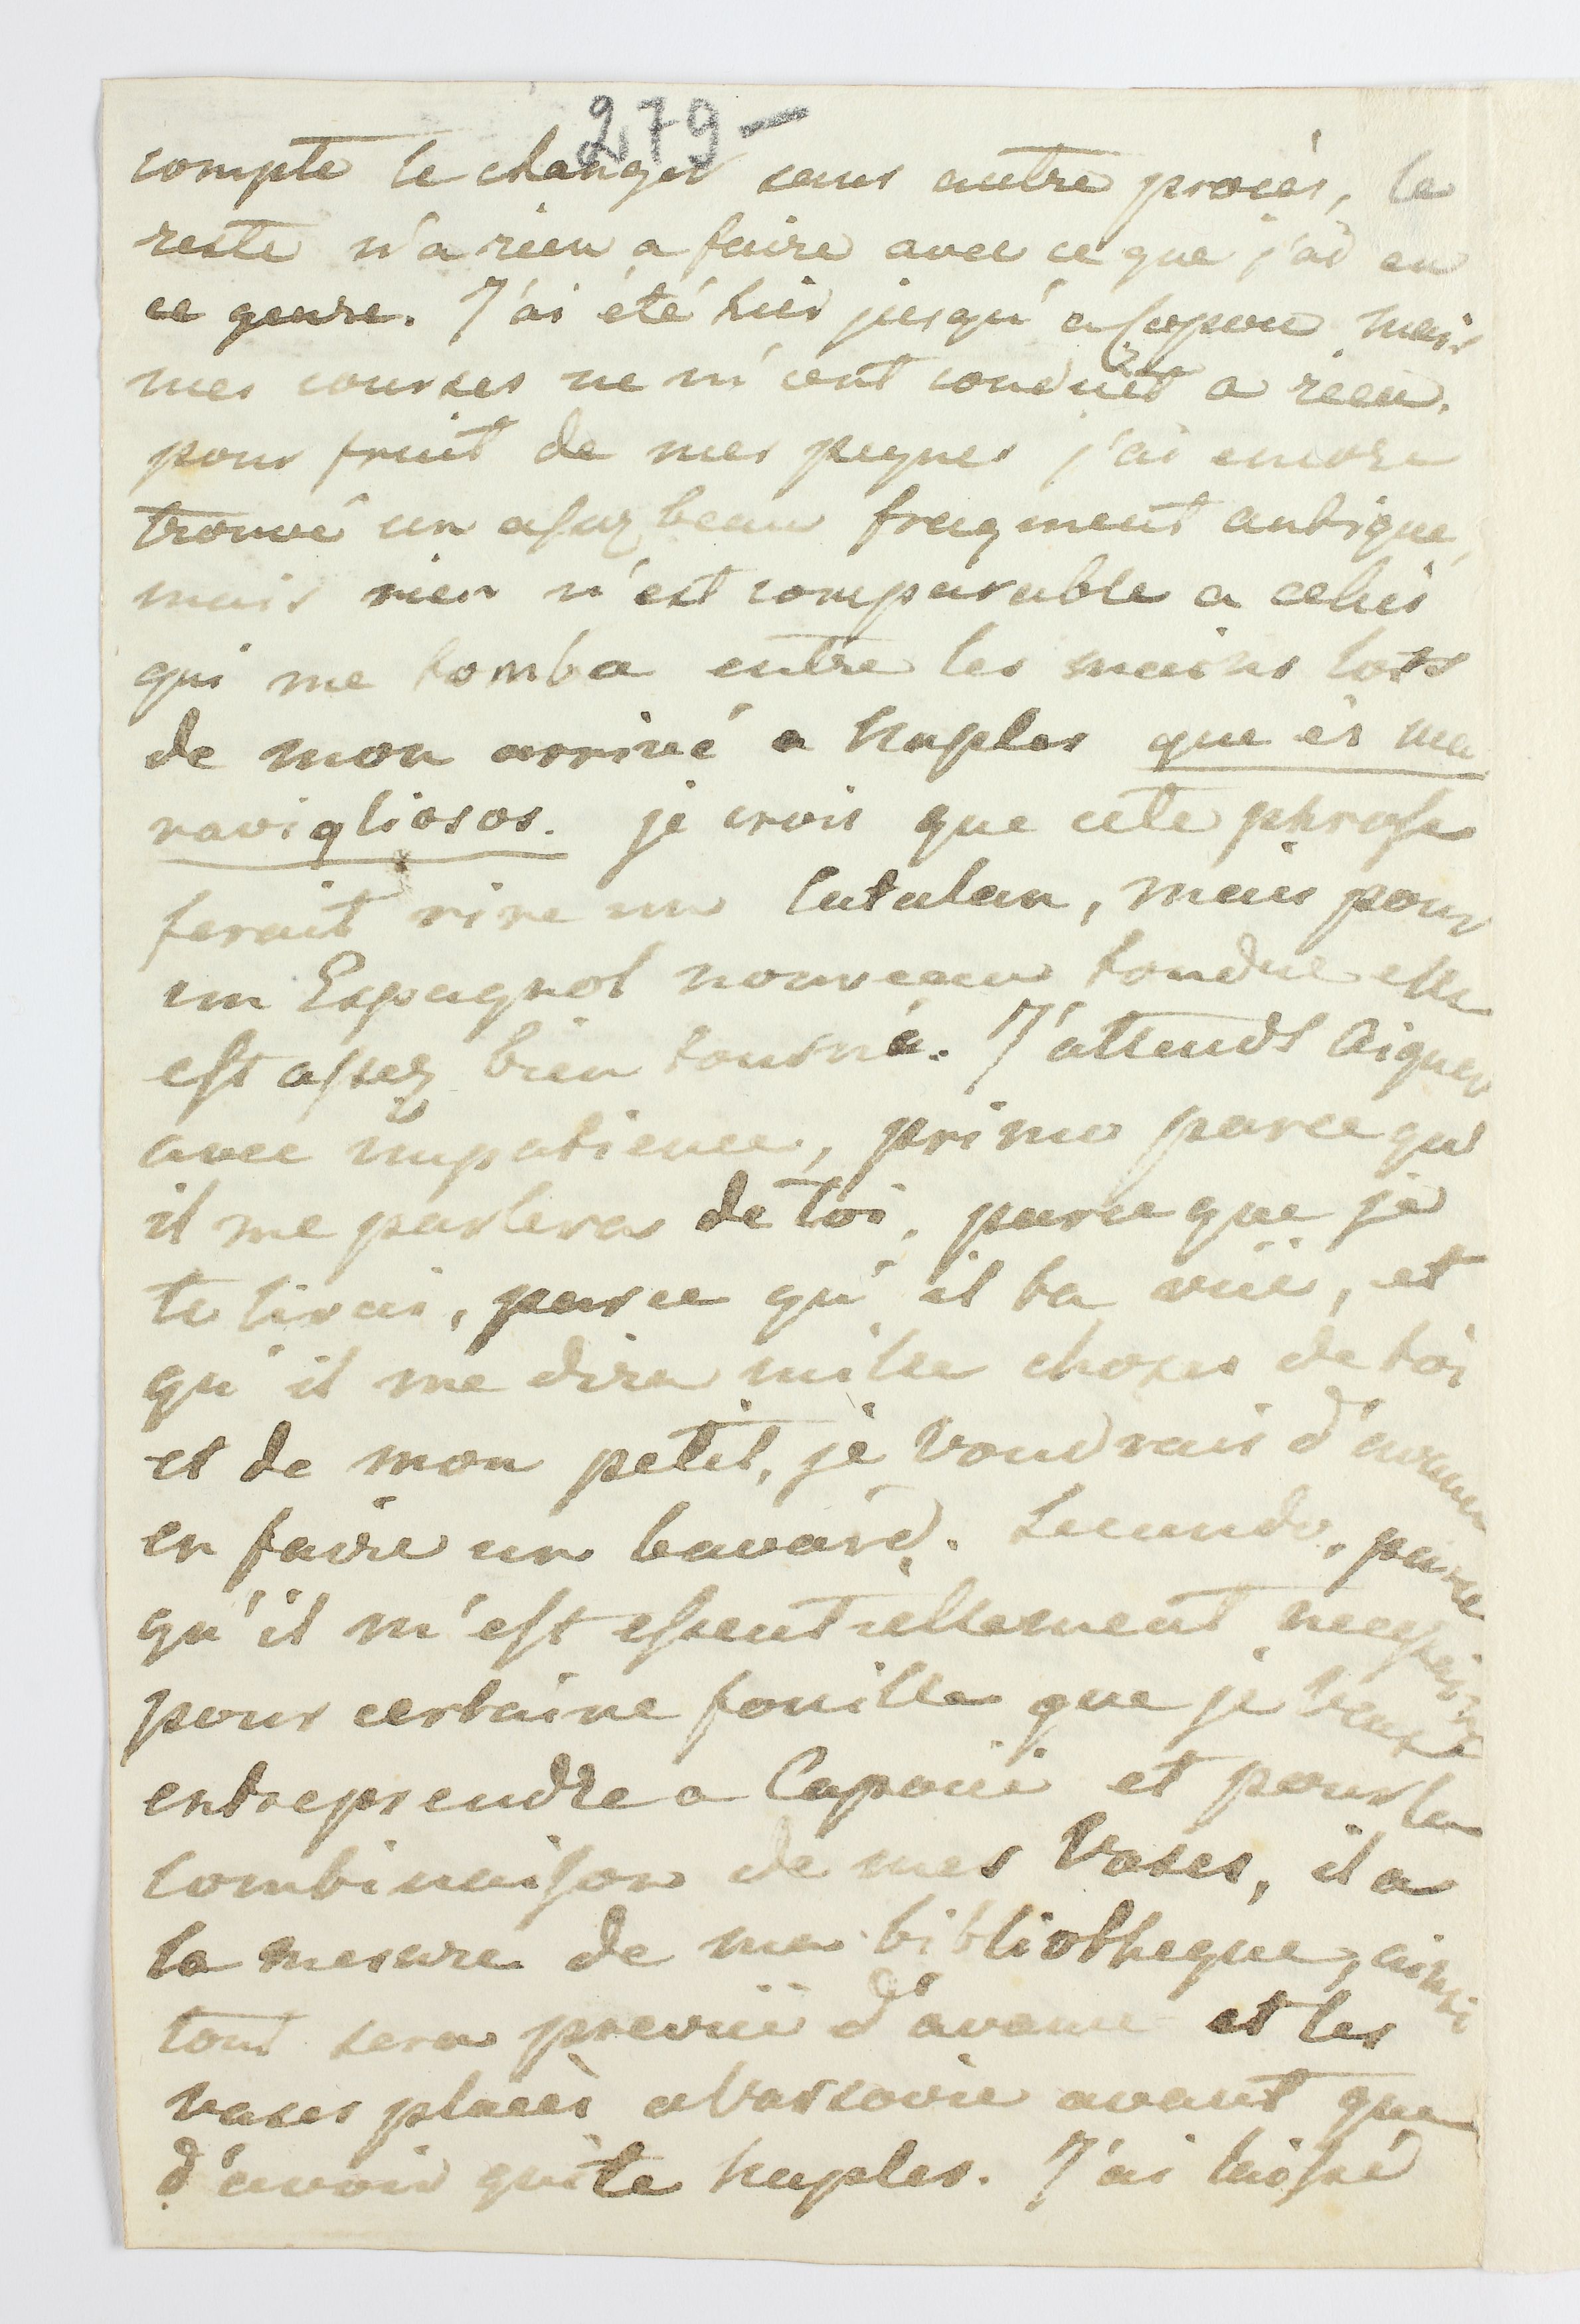 279 –
compte le changer sans autre procès, le
reste n'a rien a faire avec ce que j'ai en
ce genre. J'ai été hier jusqu'a Capoue mais
mes courses ne m'ont conduit a rien.
pour fruit de mes peynes j'ai encore
trouvé un assez beau fragment antique,
mais rien n'est comparable a celui
qui me tomba entre les mains lors
de mon arrivé a Naples que és ma
ravigliosos. je crois que cete phrase
ferait rire un Catalan, mais pour
un Espagnol nouveau tondue elle
est assez bien tourné. J'attends Aigner
avec impatience, primo parce qu'
il me parlera de toi, parce que je
te lirai, parce qu'il ta vüe, et
qu'il me dira mille choses de toi
et de mon petit, je voudrais d'avance
en faire un bavard. Secundo, parce
qu'il m'est essentiellement necessaire
pour certaine fouille que je veux
entreprendre a Capoüe et pour la
combinaison de mes Vases, il a
la mesure de ma bibliotheque, ainsi
tout sera prevüe d'avance et les
vases placès a Varsovie avant que
d'avoir quite Naples. J'ai laissé